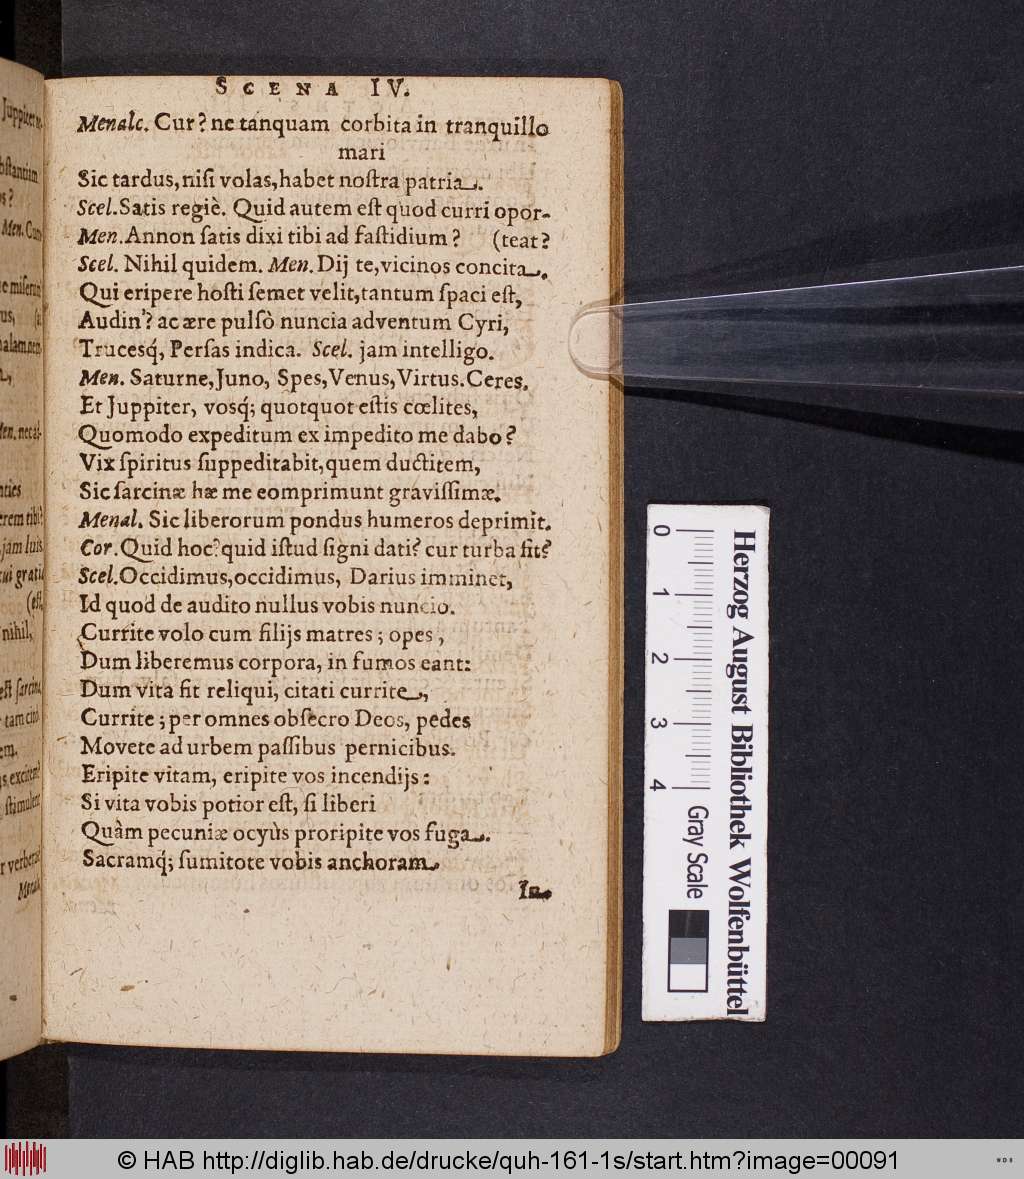 SCENA IV.
Menalc. Cur? ne tanquam corbita in tranquillo
mari
Sic tardus, niſi volas, habet noſtra patria.
Scel. Satis regiè. Quid autem eſt quod curri opor-
Men. Annon ſatis dixi tibi ad faſtidium? (teat?
Scel. Nihil quidem. Men. Dij te, vicinos concita.
Qui eripere hoſti ſemet velit, tantum ſpaci eſt,
Audin'? ac ære pulſò nuncia adventum Cyri,
Trucesq́, Perſas indica. Scel. jam intelligo.
Men. Saturne, Juno, Spes, Venus, Virtus. Ceres.
Et Juppiter, vosq́; quotquot eſtis cœlites,
Quomodo expeditum ex impedito me dabo?
Vix ſpiritus ſuppeditabit, quem ductitem,
Sic ſarcinæ hæ me eomprimunt graviſſimæ.
Menal. Sic liberorum pondus humeros deprimit.
Cor. Quid hoc? quid iſtud ſigni dati? cur turba fit?
Scel. Occidimus, occidimus, Darius imminet,
Id quod de audito nullus vobis nuncio.
Currite volo cum filijs matres; opes,
Dum liberemus corpora, in fumos eant:
Dum vita fit reliqui, citati currite,
Currite; per omnes obſecro Deos, pedes
Movete ad urbem paſſibus pernicibus.
Eripite vitam, eripite vos incendijs:
Si vita vobis potior eſt, ſi liberi
Quàm pecuniæ ocyùs proripite vos fuga.
Sacramq́; ſumitote vobis anchoram
In.
Juppiter
bſtantiam
Men. Cum
nihil,
0 1 2 3 4
Gray Scale
Herzog August Bibliothek Wolfenbüttel
© HAB http://diglib.hab.de/drucke/quh-161-1s/start.htm?image=00091